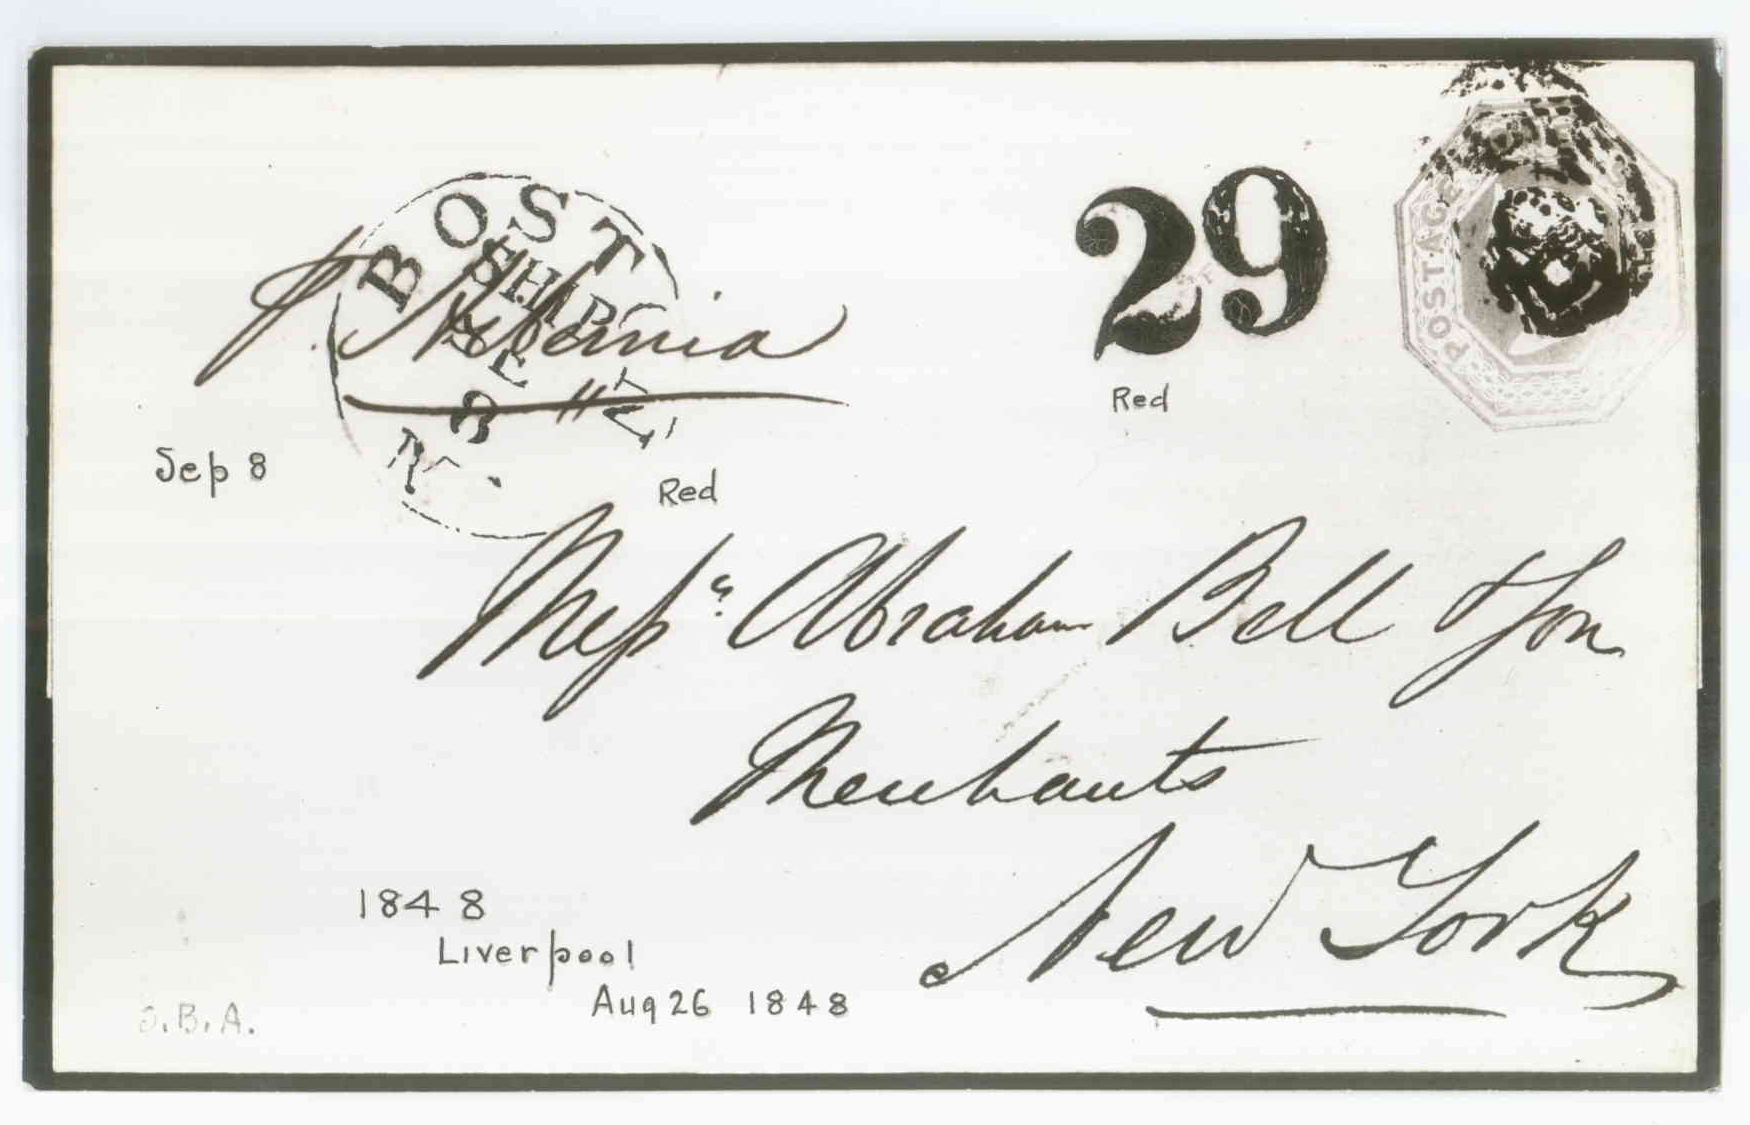 BOST
SHIP
SEP
8
pr Hibernia
29
POSTAGE
Red
Sep 8
Red
Mess.rs Abraham Bell & Son
Merchants
New York
1848
Liverpool
Aug 26 1848
J.B.A.